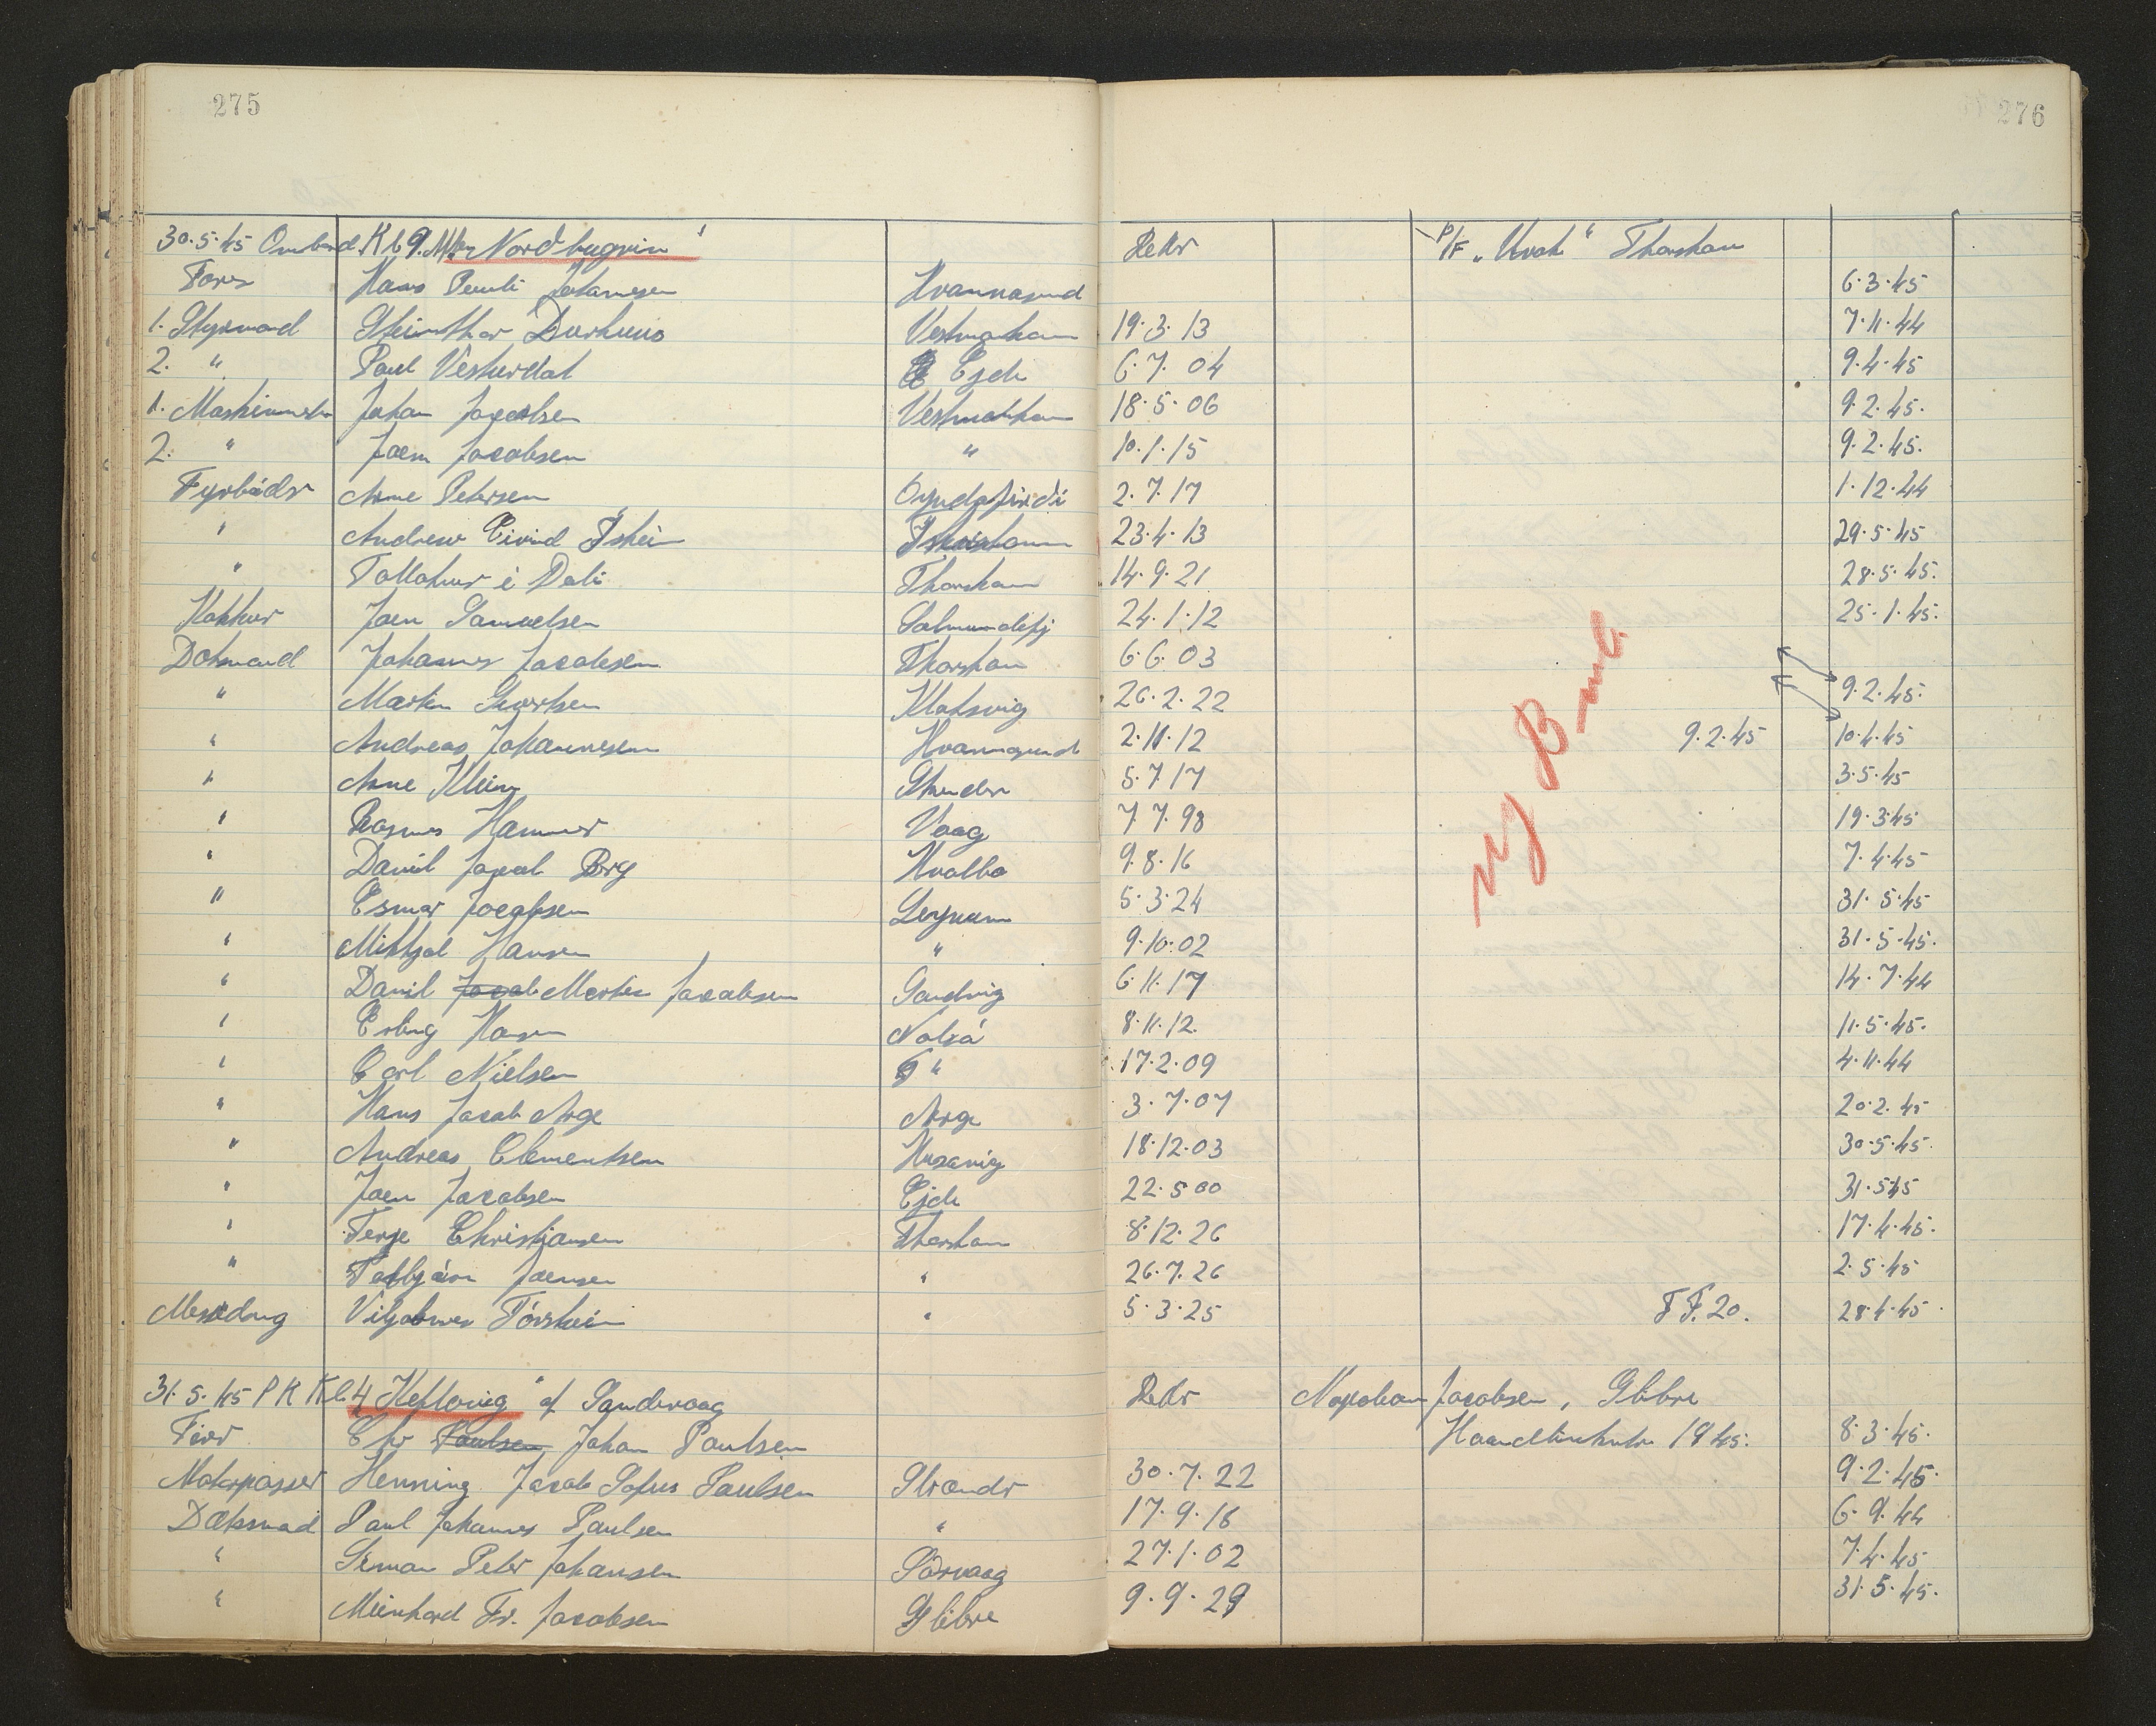 275
276
30.5.45 Ombord Kl 9. "Nordbugvin" Rektr P/F "Kvok" Thorshavn
Førar Hans Pauli Johannesen Hvannasund 6.3.45
1. Styrmand Steinthor Durhuus Vestmanhavn 19.3.13 7.11.44
2. " Poul Vesturdal Ejde 6.7.04 9.4.45
1. Maskinmstr Johan Jacobsen Vestmanhavn 18.5.06 9.2.45.
2. " Joen Jacobsen " 10.1.15 9.2.45.
Fyrbødr Arne Petersen Oyndafirdi 2.7.17 1.12.44
" Andrew Eivind Isheim Thorshavn 23.4.13 29.5.45
" Tollakur i Dali Thorshavn 14.9.21 28.5.45.
Kokkur Joen Samuelsen Salmundefj 24.1.12 25.1.45.
Deksmand Johannes Jacobsen Thorshavn 6.6.03
" Martin Sivertsen Klaksvig 26.2.22 9.2.45.
" Andreas Johannesen Hvannasund 2.11.12 9.2.45 10.4.45
" Arne Klein Strender 5.7.17 3.5.45
" Rasmus Hammer Vaag 7.7.98 19.3.45
" Daniel Jacob Berg Hvalbø 9.8.16 7.4.45
" Esmar Jocobsen Leynum 5.3.24 31.5.45
" Mikkjal Hansen " 9.10.02 31.5.45.
" Daniel Jacob Morten Jacobsen Sandvig 6.11.17 14.7.44
" Erling Hansen Nolsá 8.11.12. 11.5.45.
" Carl Nielsen " 17.2.09 4.11.44
" Hans Jacob Arge Arge 3.7.07 20.2.45
" Andreas Clementsen Husavig 18.12.03 30.5.45.
" Joen Jacobsen Ejde 22.5 00 31.5.45
" Terje Christiansen Thorshavn 8.12.26 17.4.45.
" Torbjørn Joensen " 26.7.26 2.5.45
Messedreng Viljalmur Tórsheim " 5.3.25 F F. 20. 28.4.45.
31.5.45 P K Kl 4 "Keflavig" af Sandevaag Rektr Napoleon Jacobsen, Glibre
Førar Chr Paulsen Johan Poulsen 1945. 8.3.45.
Motorpasser Henning Jacob Sofus Paulsen Strandr 30.7.22 9.2.45.
Dæksmad Paul Johannes Paulsen " 17.9.16 6.9.44
" Simon Peter Johansen Sørvaag 27.1.02 7.4.45
" Meinhard Fr. Jacobsen Glibre 9.9.29 31.5.45.